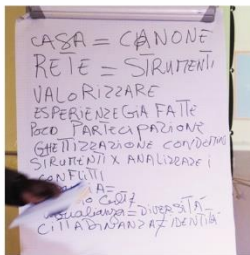 CASA = CANONE
RETE = STRUMENTI
VALORIZZARE
ESPERIENZE GIA FATTE
POCO PARTECIPAZIONE
GHETTIZZAZIONE
STRUMENTI X ANALIZZARE i
CONFLITTI
= DIVERSITÀ
CITTADINANZA ≠ IDENTITÀ